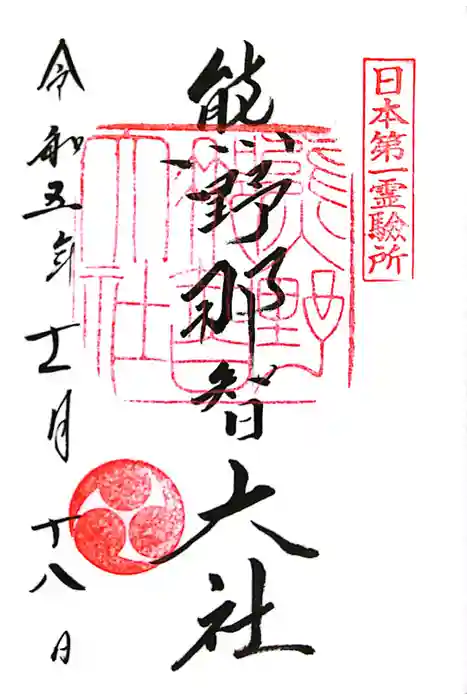 日本第一霊験所
熊野那智大社
令和五年十二月十八日